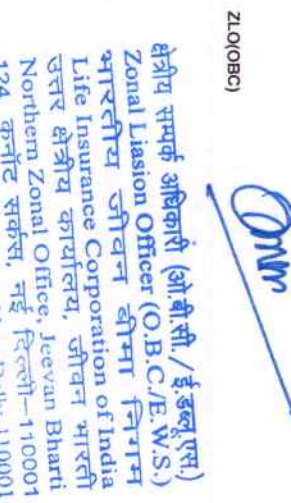 ZLO(OBC)
क्षेत्रीय सम्पर्क अधिकारी (ओ.बी.सी./ई.डब्लू.एस.)
Zonal Liasion Officer (O.B.C./E.W.S.)
भारतीय जीवन बीमा निगम
Life Insurance Corporation of India
उत्तर क्षेत्रीय कार्यालय, जीवन भारती
Northern Zonal Office, Jeevan Bharti
124, कनॉट सर्कस, नई दिल्ली-110001
110001